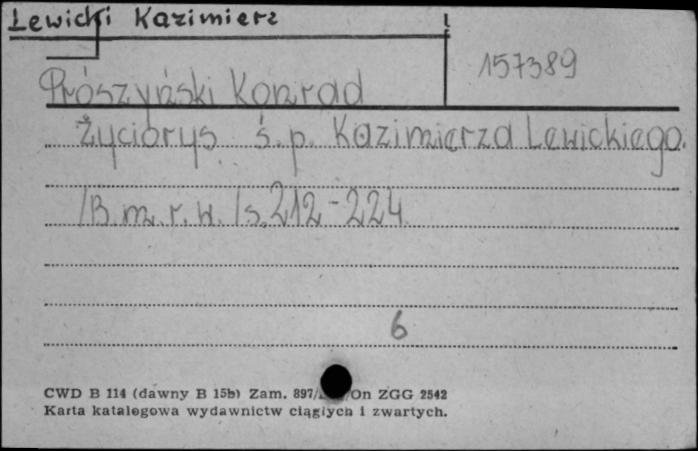 Lewicki Kazimierz
157389
Prószyński Konrad
Życiorys ś. p. Kazimierza Lewickiego.
/B. m. r. w. /s. 212-224
6
CWD B 114 (dawny B 15b) Zam. 897/ On ZGG 2542
Karta katalogowa wydawnictw ciągłych i zwartych.